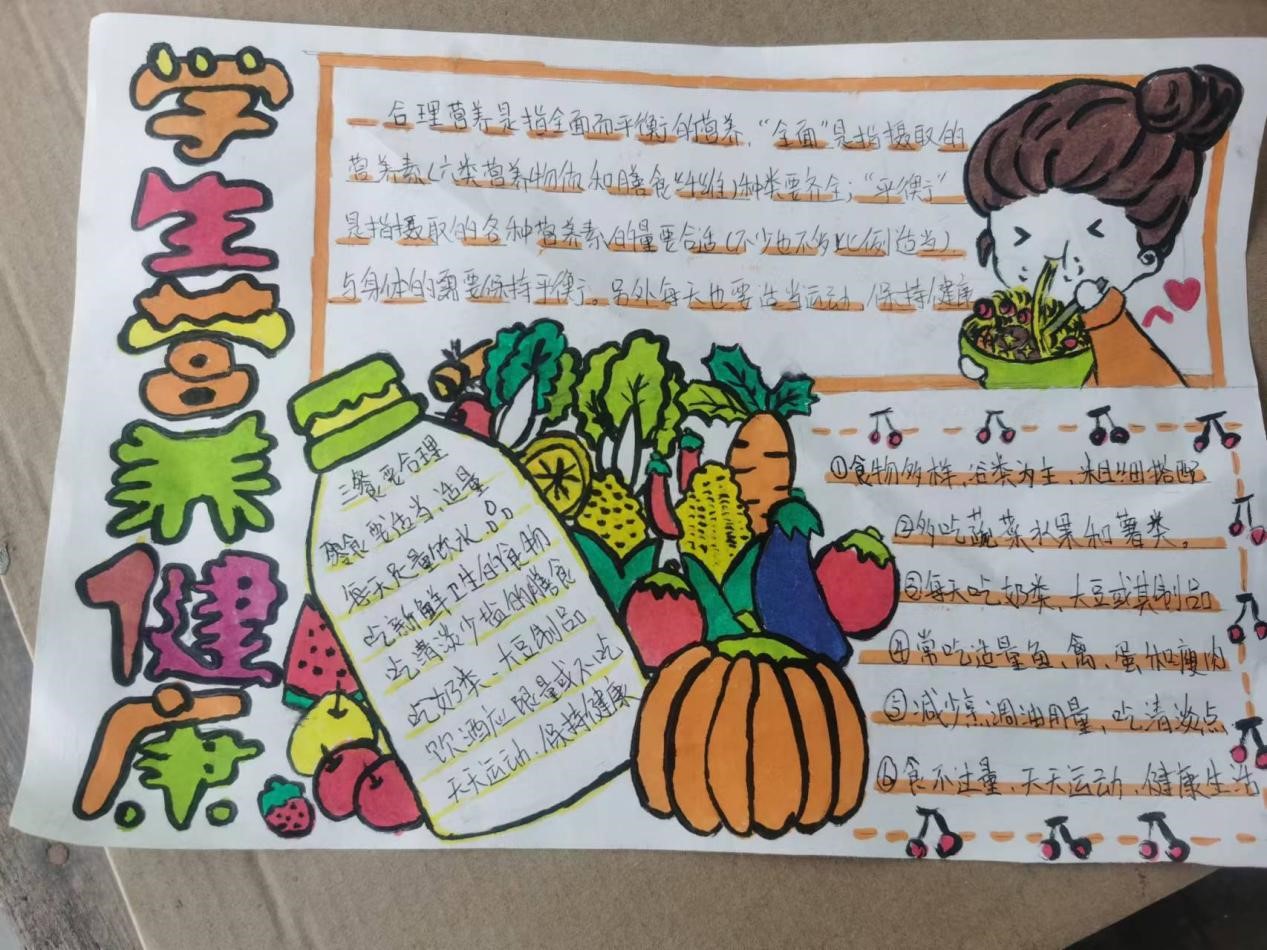 学生营养健康
合理营养是指全面而平衡的营养.“全面”是指摄取的
营养素(六类营养物质和膳食纤维)种类要齐全;“平衡”
是指摄取的各种营养素的量要合适(不少也不多比例适当)
与身体的需要保持平衡。另外每天也要适当运动.保持健康
三餐要合理
零食要适当.适量
每天足量饮水
吃新鲜卫生的食物
吃清淡少盐的膳食
吃奶类、大豆制品
饮酒应限量或不吃
天天运动.保持健康
①食物多样,谷类为主,粗细搭配
②多吃蔬菜水果和薯类。
③每天吃奶类、大豆或其制品
④常吃适量鱼、禽、蛋和瘦肉
⑤减少烹调油用量,吃清淡点
⑥食不过量,天天运动.健康生活